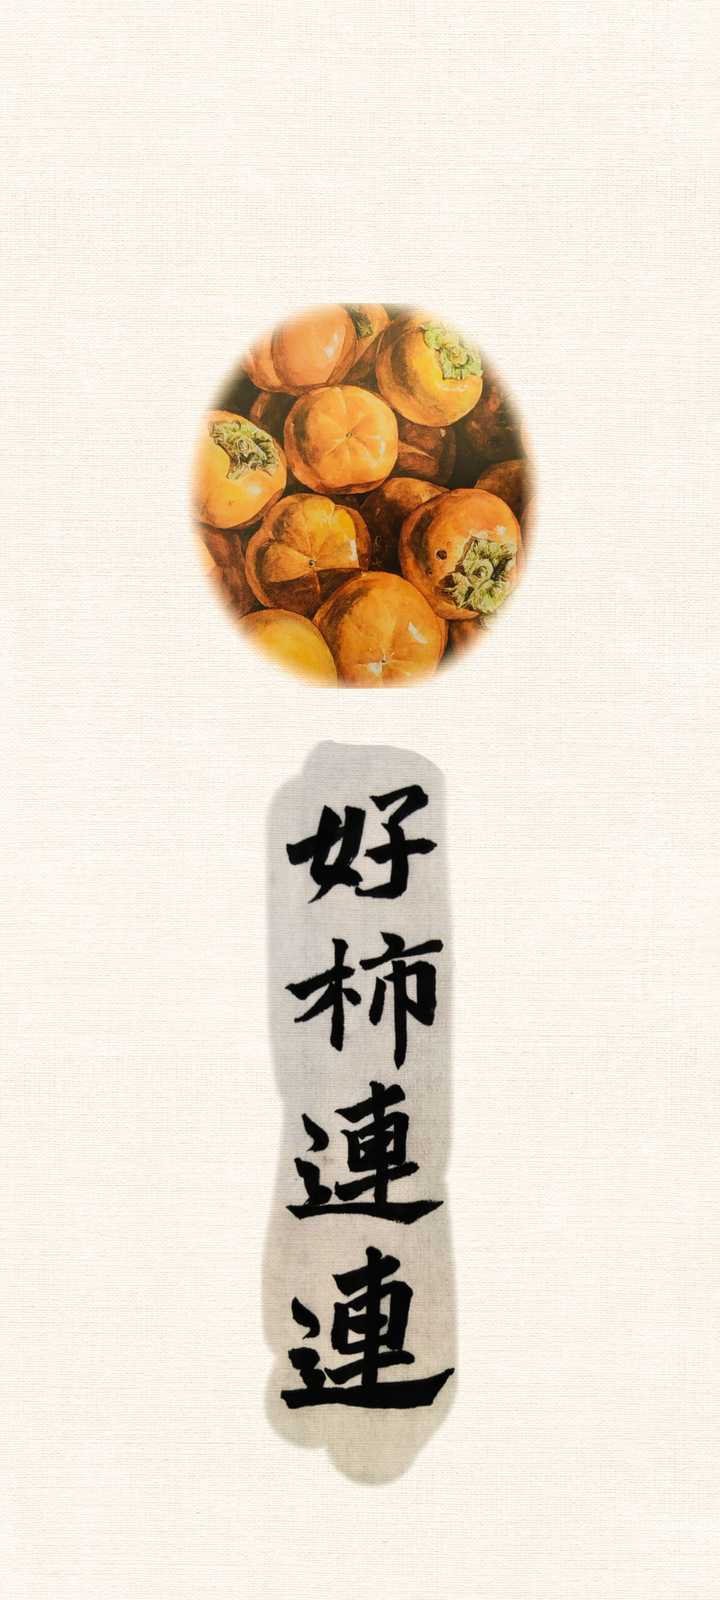 好柿連連